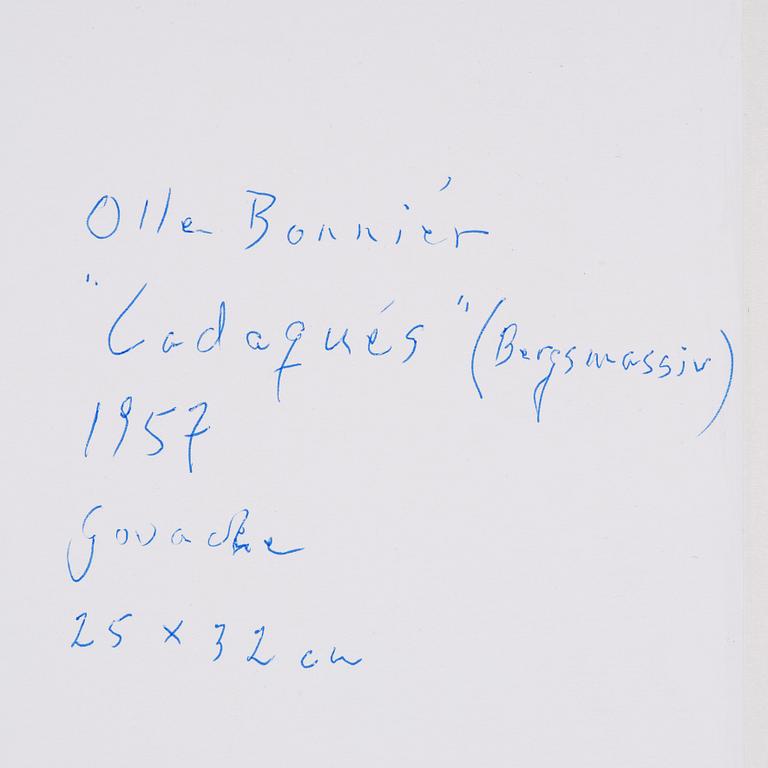 Olle Bonniér
"Cadaqués" (Bergsmassiv)
1957
Gouache
25 x 32 cm